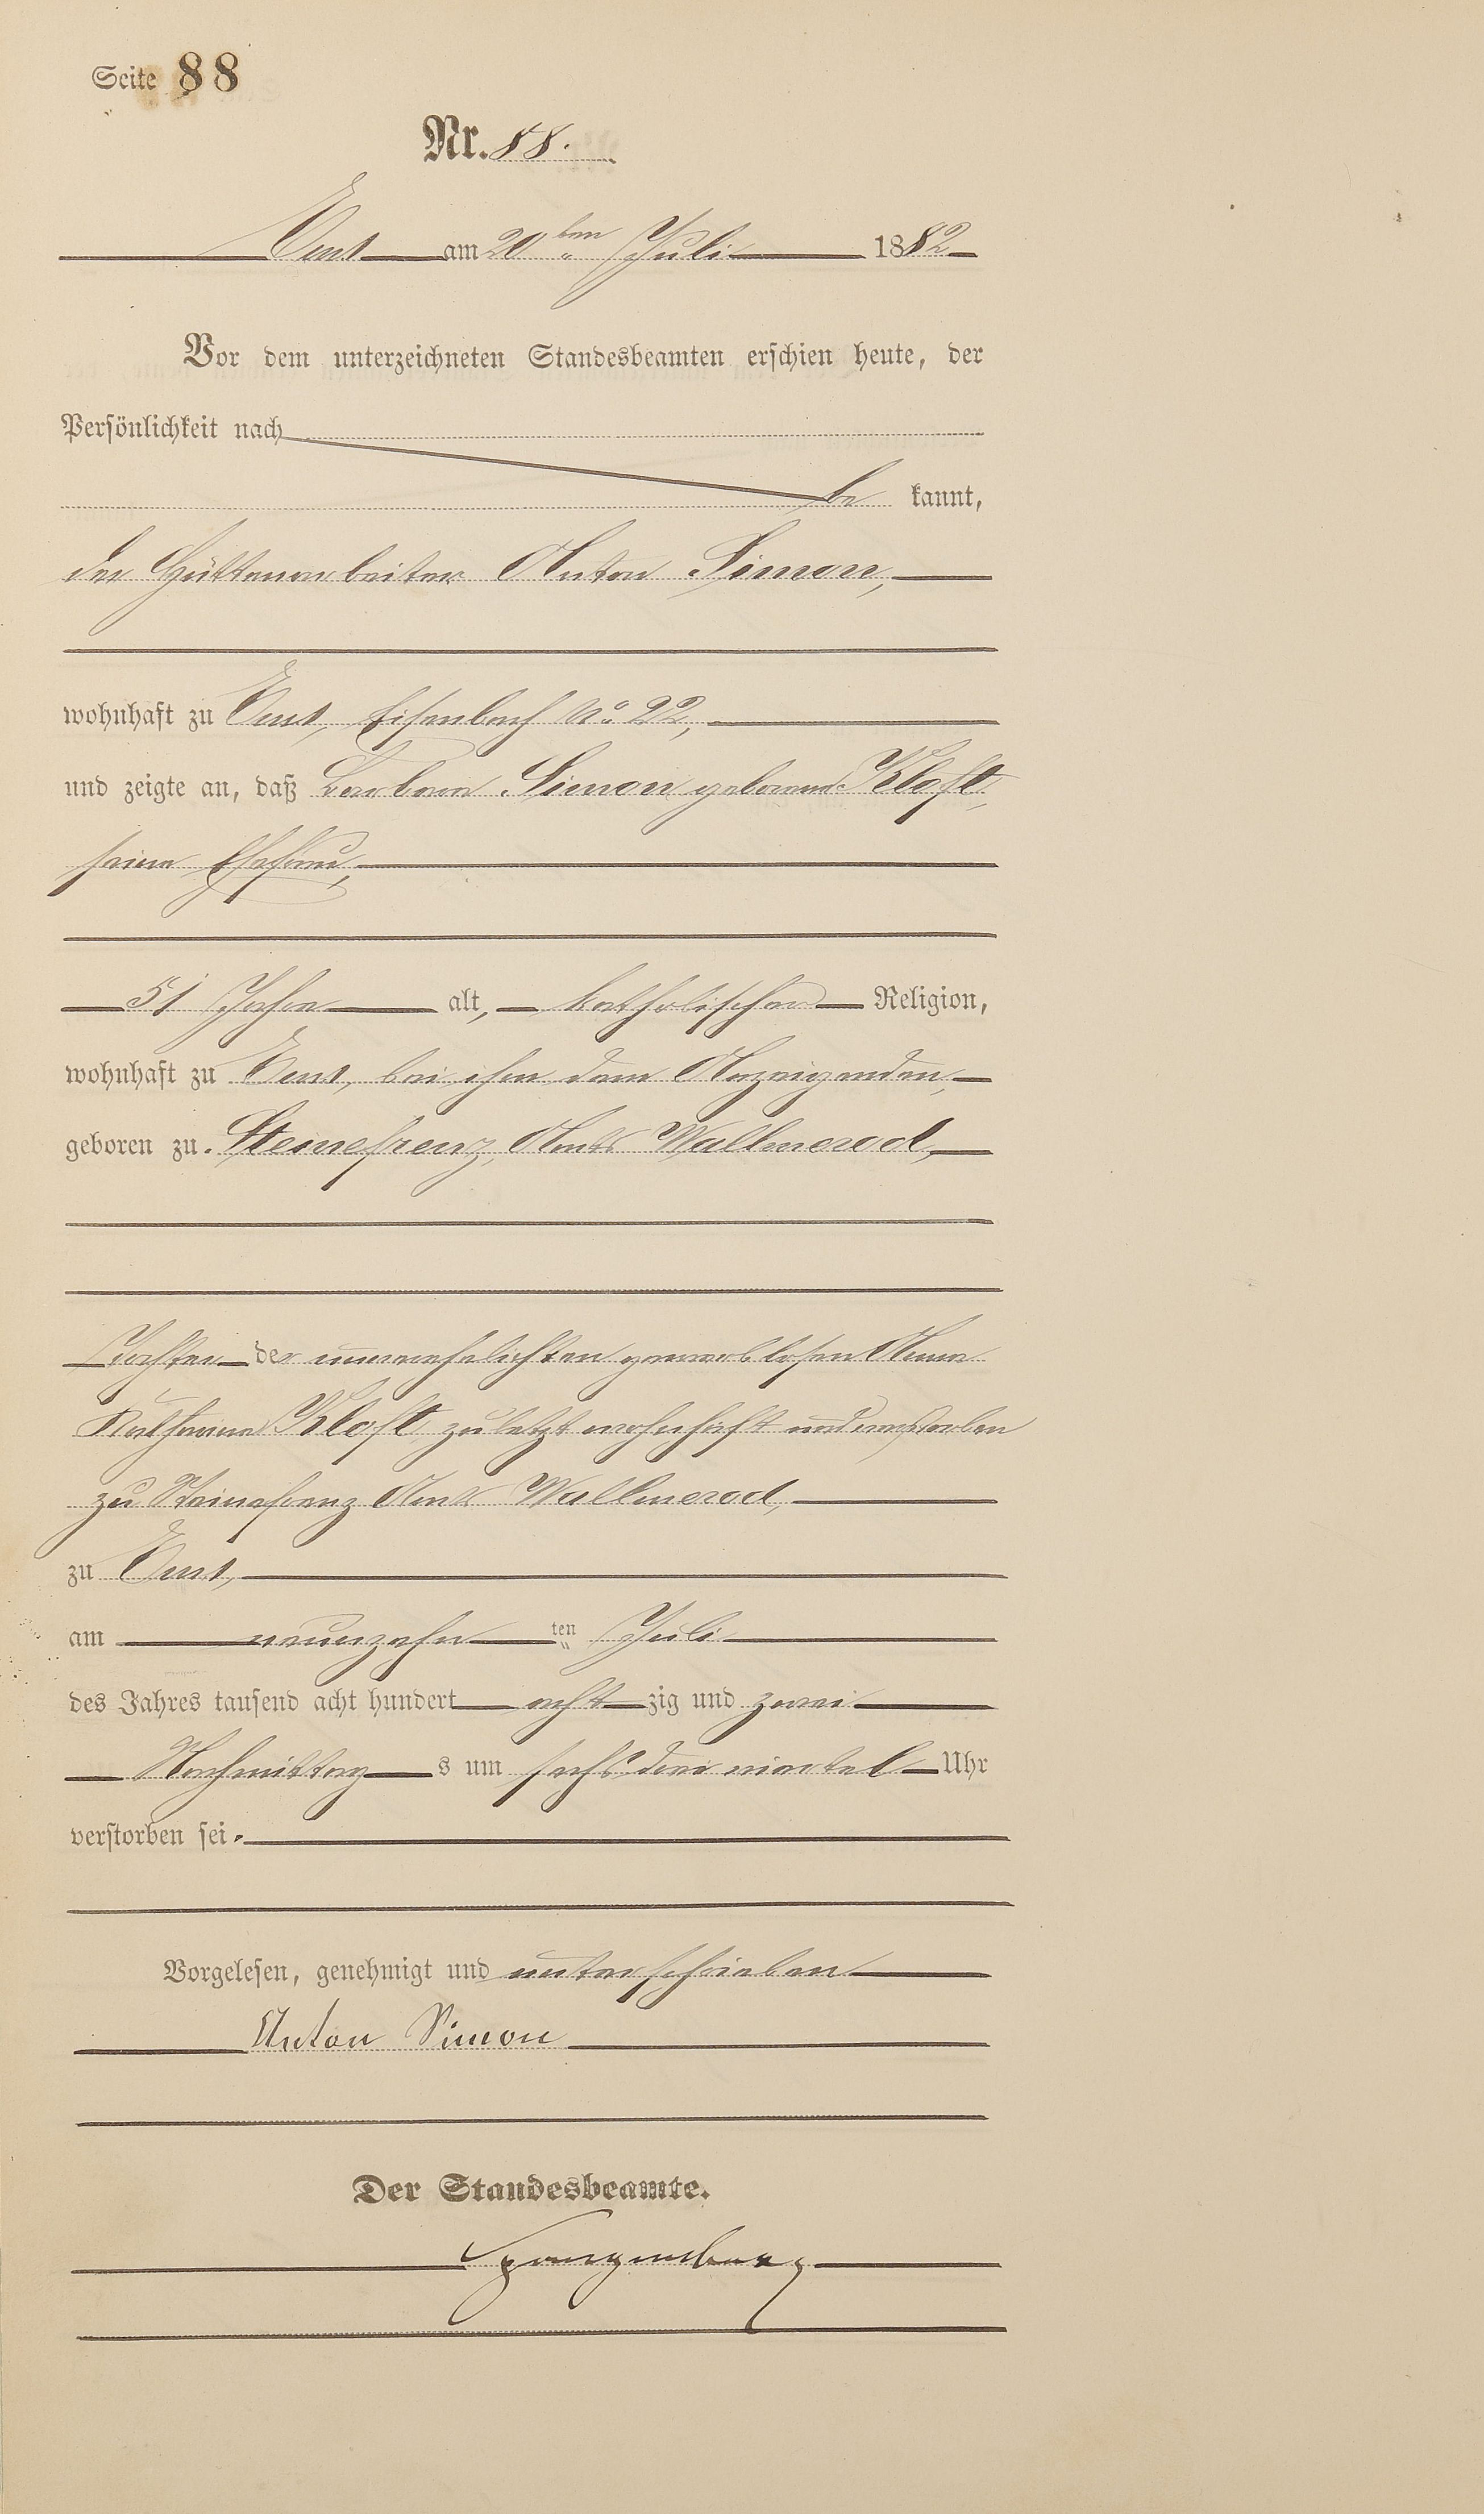 Seite 88
Nr. 88.
Ems am 20ten Juli 1882
Vor dem unterzeichneten Standesbeamten erschien heute, der
Persönlichkeit nach
be kannt,
der Hüttenarbeiter Anton Simon,
wohnhaft zu Ems, Eisenbach No 22,
und zeigte an, daß Barbara Simon geborene Kloft,
seine Ehefrau,
51 Jahre alt, katholischer Religion,
wohnhaft zu Ems, bei ihm dem Anzeigenden,
geboren zu Steinefrenz, Amts Wallmerod,
Tochter der unverehelichten gewerblosen Anna
Katharina Kloft, zuletzt wohnhaft und verstorben
zu Steinefrenz Amts Wallmerod,
zu Ems,
am neunzehn ten Juli
des Jahres tausend acht hundert acht zig und zwei
Nachmittag s um sechs drei viertel Uhr
verstorben sei.
Vorgelesen, genehmigt und unterschrieben
Anton Simon
Der Standesbeamte.
Spangenberg